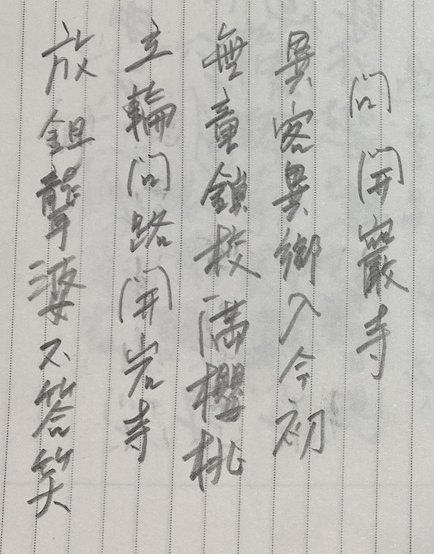 問開巖寺
異客異鄉入今初
無童鎖校滿櫻桃
立輪問路開岩寺
放鉏聾婆不答笑